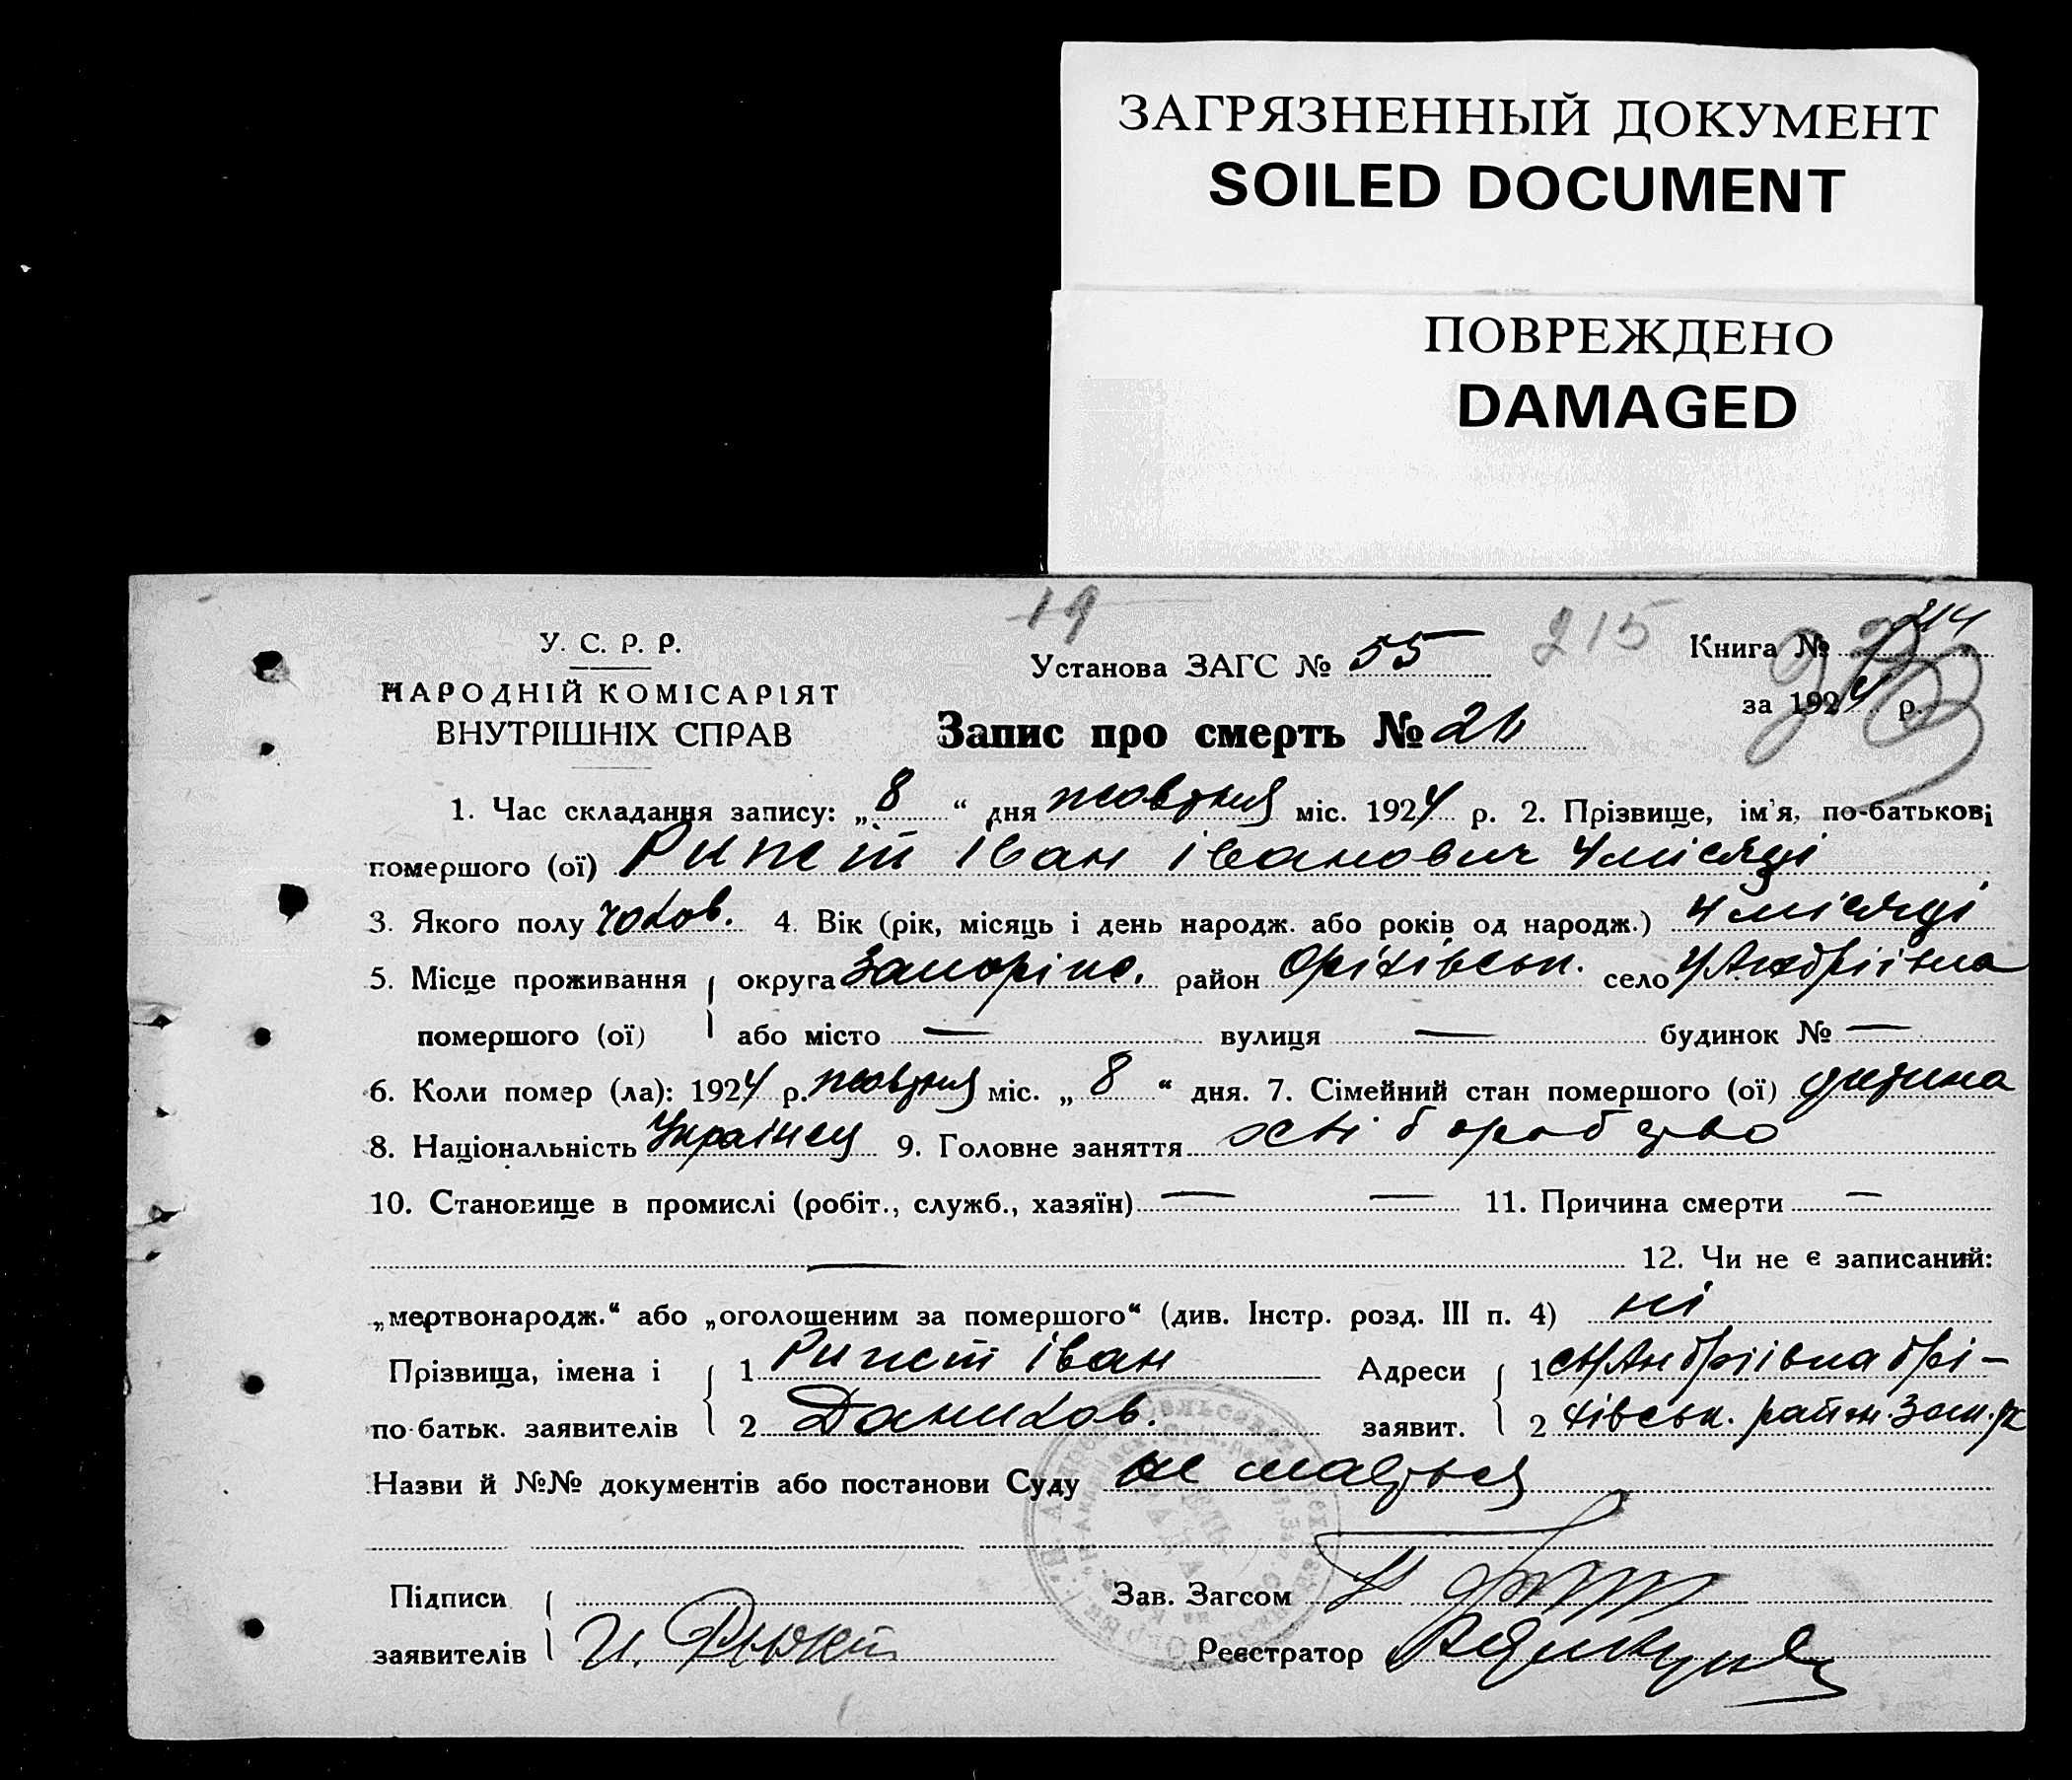 ЗАГРЯЗНЕННЫЙ ДОКУМЕНТ
SOILED DOCUMENT
ПОВРЕЖДЕНО
DAMAGED
19
215
214
У. С. Р. Р.
НАРОДНІЙ КОМІСАРІЯТ
ВНУТРІШНІХ СПРАВ
Установа ЗАГС № 55
Книга №
за 1924 р.
Запис про смерть №
1. Час складання запису: „8“ дня жовтня міс. 1924 р. 2. Прізвище, ім'я, по-батькові
помершого (ої) Іван Іванович 4 місяці
3. Якого полу чолов. 4. Вік (рік, місяць і день народж. або років од народж.) 4 місяці
5. Місце проживання округа Запоріж. район Оріхівськ. село Андріївка
помершого (ої) або місто — вулиця — будинок № —
6. Коли помер (ла): 1924 р. жовтня міс. „8“ дня. 7. Сімейний стан помершого (ої) дитина
8. Національність Українец 9. Головне заняття хліборобство
10. Становище в промислі (робіт., служб., хазяїн) — — 11. Причина смерти —
— 12. Чи не є записаний:
„мертвонародж.“ або „оголошеним за помершого“ (див. Інстр. розд. III п. 4) ні
Прізвища, імена і 1 Іван Адреси 1 Андріївка Орі-
по-батьк. заявителів 2 Данилов. заявит. 2 хівськ. район. Зап.
Назви й №№ документів або постанови Суду не мається
Підписи Зав. Загсом
заявителів И. Реєстратор